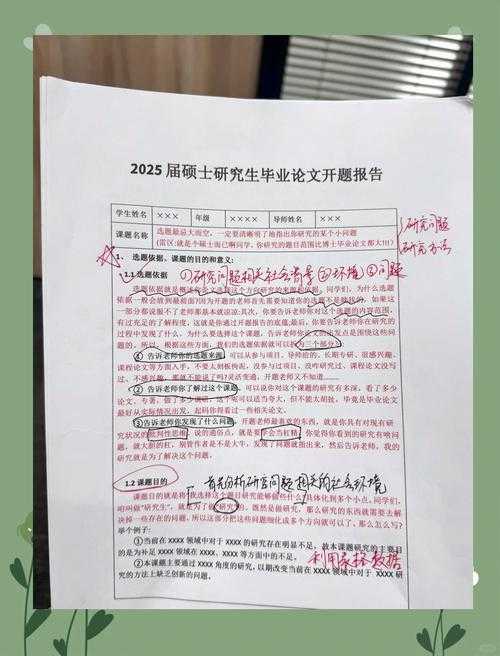 2025 届硕士研究生毕业论文开题报告
学生姓名 ××× 年级 ×××× 导师姓名 ×××
课题名称 选题最忌大而空,一定要清晰明了地指出你研究的某个小问题
(雷区:就是个硕士而已啊同学,你研究的题目范围比博士毕业论文都大!!!)
研究问题
研究方法
1、 选题依据、课题的目的和意义:
1.1 选题依据 ①研究问题相关社会背景 ②环境 ③问题
选题依据就是概述你论文选择这个方向研究的来源和依据,同学们,为什么选题
依据一般会放到最前面?因为开题的老师首先需要知道你的选题不是瞎找的,如果这
一部分都说服不了老师那基本就凉凉;其次,你要告诉老师你对这个选题的内容范围,
有过充足的了解程度,这就是你通过开题报告的底蕴;最后,你要告诉你在研究的
过程中发现了什么,为什么要选择这个课题,告诉老师你论文的出发点是围绕这些问题
的,所以,根据这些方面,我们的选题依据就可以分为三个部分:
① 告诉老师你的选题来源,可以从参与项目、导师给的、长期专研、很感兴趣、
课程论文等方面入手,不要太刻板快泥,没参与过项目、没咋研究过、课程论文没写
过、不感兴趣,那就不能说了吗?灵活变通,开题老师又不知道
② 告诉老师你了解过这个课题,可以说你对这个课题的研究有多深,看了多少
论文、专著,做了多少调研,这个呢可以适当夸大,但不能太胡扯,毕竟是毕业论文
最好从实际情况出发,起码你得看过一些相关论文。
③告诉老师你发现了什么问题,开题老师最喜欢的东西,就是你具有对现有研
究状况的批判性思维,说的通俗点,就是要学会当杠精,你觉得你看到的研究有啥问
题,就大胆杠出来,别管杠对杠错,发现了问题就指出来,然后告诉老师,我的
研究就是为了解决这个问题。
1.2 课题目的 首先分析研究问题相关的社会环境
课题目的就是将“我选择这个题目研究能够做些什么”具体化到多个小点,同学们,
咱叫做“研究生”,就为了的“研究”的,既然是做研究,那么研究的东西就需要去解
决掉一些存在的问题,所以这部分把这些问题细化成多个方向就可以了,那么怎么写?
举个例子:
①当前在 XXXX 领域中对于 XXXX 的研究存在明显不足,故本课题研究的主要目
的是为补足 XXXX 领域在 XXXX、XXXX 等方面中的不足, 利用 数据
②本课题主要通过 XXXX 角度的研究,以期改变当前在 XXXX 领域中对于 XXXX 研
究的方法上缺乏创新的问题,